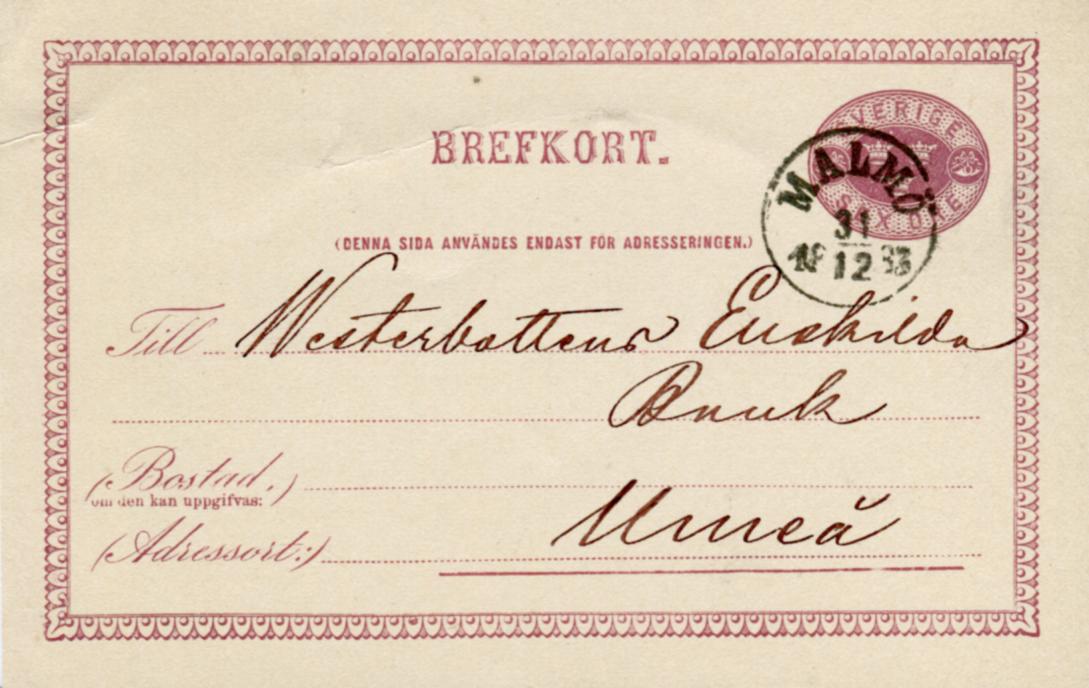 BREFKORT.
SVERIGE
SEX ÖRE
MALMÖ
31
18 12 83
(DENNA SIDA ANVÄNDES ENDAST FÖR ADRESSERINGEN.)
Till Westerbottens Enskilda
Bank
(Bostad.)
om den kan uppgifvas:
Umeå
(Adressort:)